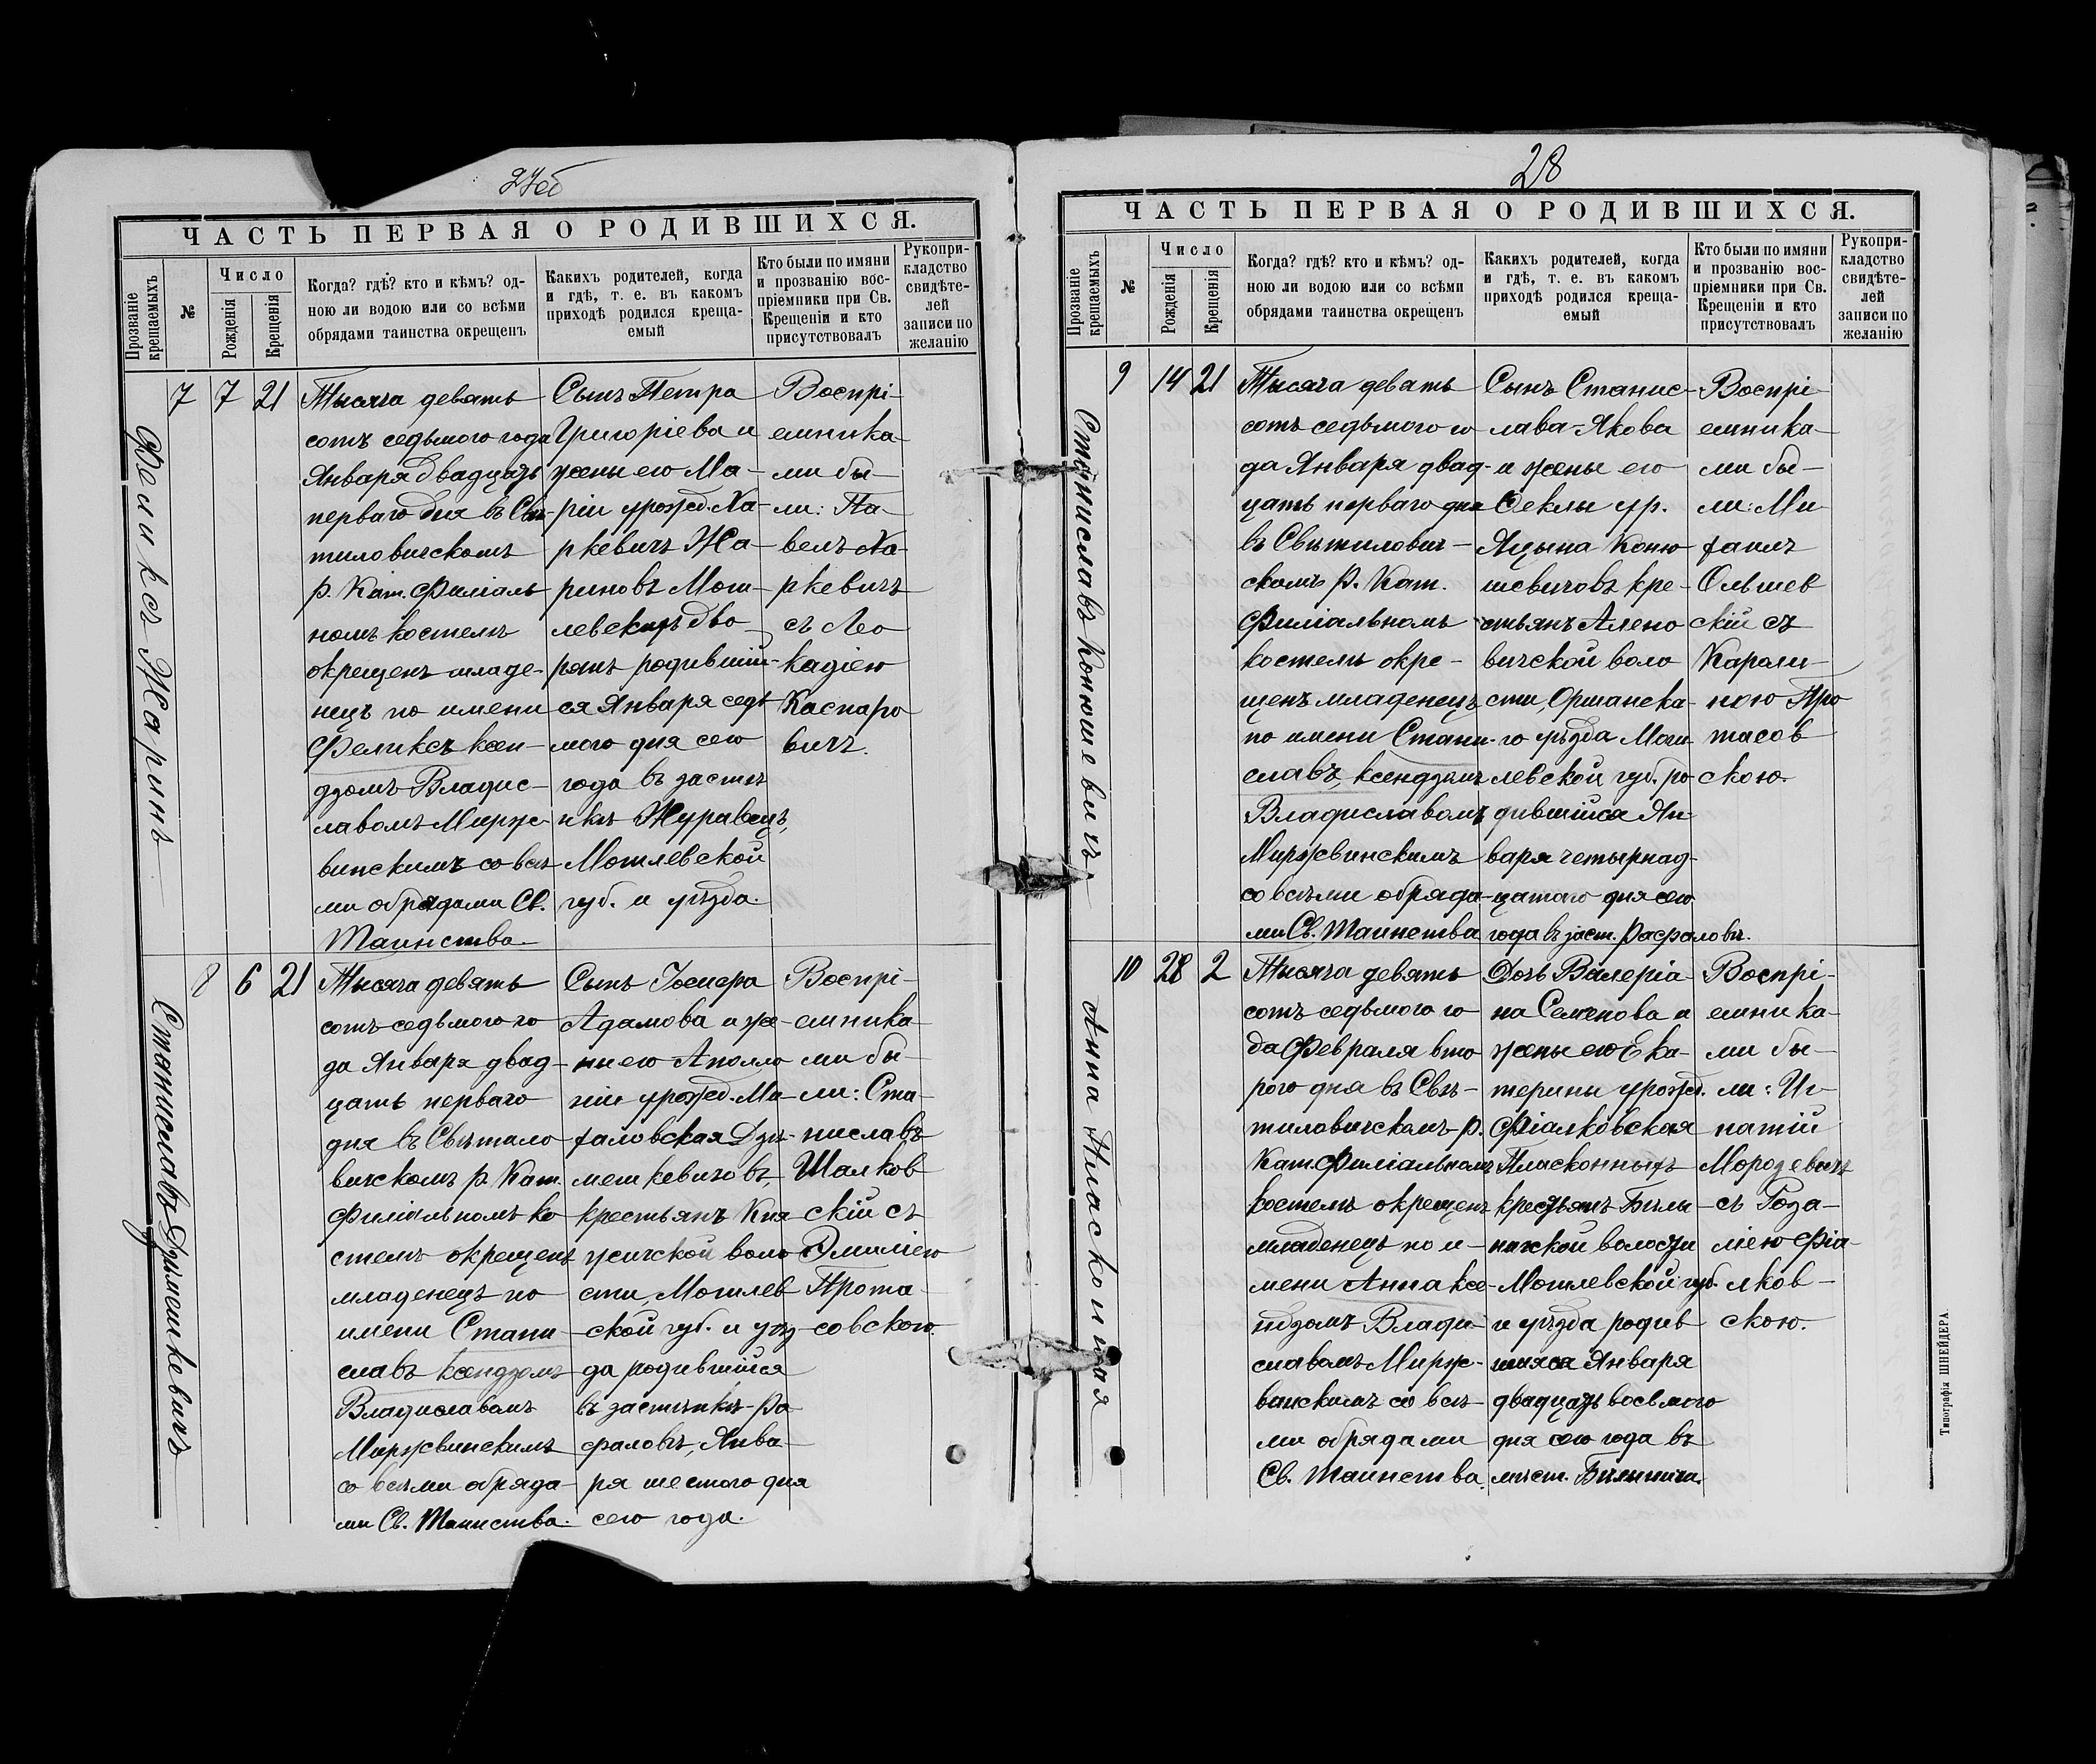 27об
ЧАСТЬ ПЕРВАЯ О РОДИВШИХСЯ.
Прозваніе крещаемыхъ
№
Число
Рожденія
Крещенія
Когда? гдѣ? кто и кѣмъ? од-
ною ли водою или со всѣми
обрядами таинства окрещенъ
Какихъ родителей, когда
и гдѣ, т. е. въ какомъ
приходѣ родился креща-
емый
Кто были по имяни
и прозванію вос-
пріемники при Св.
Крещеніи и кто
присутствовалъ
Рукопри-
кладство
свидѣте-
лей
записи по
желанію
Феликсъ Жаринъ
7 7 21
Тысяча девять
сотъ седьмого года
Января двадцать
перваго дня въ Свѣ-
тиловичскомъ
р. Кат. Филіаль
номъ костелѣ
окрещенъ младе-
нецъ по имени
Феликсъ ксен-
дзомъ Владис-
лавомъ Мирж-
винскимъ со всѣ
ми обрядами Св.
Таинства.
Сынъ Петра
Григоріева и
жены его Ма-
ріи урожд. Ха-
ркевичъ Жа-
риновъ Моги-
левскихъ дво-
рянъ родившій-
ся Января седь
мого дня сего
года въ застѣ
нкѣ Журавецъ,
Могилевской
губ. и уѣзда.
Воспрі-
емника-
ми бы-
ли: Па-
велъ Ха-
ркевичъ
съ Лео
кадіею
Каспаро
вичъ.
Станиславъ Дзѣмешкевичъ
8 6 21
Тысяча девять
сотъ седьмого го
да Января двад-
цать перваго
дня въ Свѣтило
вичскомъ р. Кат.
Филіальномъ ко
стелѣ окрещенъ
младенецъ по
имени Стани-
славъ ксендзомъ
Владиславомъ
Миржвинскимъ
со всѣми обряда-
ми Св. Таинства.
Сынъ Іосифа
Адамова и же-
ны его Аполло
ніи урожд. Ма-
фаловская Дзѣ-
мешкевичовъ,
крестьянъ Кня
жичской воло
сти, Могилев
ской губ. и уѣз-
да родившійся
въ застѣнкѣ Ра-
фаловѣ, Янва-
ря шестого дня
сего года.
Воспрі-
емника-
ми бы-
ли: Ста-
ниславъ
Шалков
скій съ
Эмиліею
Прота-
совскою.
28
ЧАСТЬ ПЕРВАЯ О РОДИВШИХСЯ.
Прозваніе крещаемыхъ
№
Число
Рожденія
Крещенія
Когда? гдѣ? кто и кѣмъ? од-
ною ли водою или со всѣми
обрядами таинства окрещенъ
Какихъ родителей, когда
и гдѣ, т. е. въ какомъ
приходѣ родился креща-
емый
Кто были по имяни
и прозванію вос-
пріемники при Св.
Крещеніи и кто
присутствовалъ
Рукопри-
кладство
свидѣте-
лей
записи по
желанію
Станиславъ Конюшевичъ
9 14 21
Тысяча девять
сотъ седьмого го
да Января двад-
цать перваго дня
въ Свѣтилович-
скомъ р. Кат.
Филіальномъ
костелѣ окре-
щенъ младенецъ
по имени Стани-
славъ, ксендзомъ
Владиславомъ
Миржвинскимъ
со всѣми обряда-
ми Св. Таинства
Сынъ Станис-
лава-Якова
и жены его
Феклы ур.
Яцына Коню-
шевичовъ кре-
стьянъ Алено
вичской воло
сти, Оршанска-
го уѣзда Моги-
левской губ. ро
дившійся Ян-
варя четырнад-
цатого дня сего
года въ заст. Рафаловѣ.
Воспрі-
емника-
ми бы-
ли: Ми
хаилъ
Ольшев
скій съ
Кароли-
ною Про
тасов
скою.
Анна Плясконная
10 28 2
Тысяча девять
сотъ седьмого го
да Февраля вто
рого дня въ Свѣ-
тиловичскомъ р.
Кат. Филіальномъ
костелѣ окрещенъ
младенецъ по и-
мени Анна ксе-
ндзомъ Влади-
славомъ Мирж-
винскимъ со всѣ-
ми обрядами
Св. Таинства.
Дочь Валеріа-
на Семенова и
жены его Ека-
терины урожд.
Фіалковская
Плясконныхъ
крестьянъ Бѣлы-
ничской волости
Могилевской губ.
и уѣзда родив
шаяся Января
двадцать восьмого
дня сего года въ
мѣст. Бѣлыничи.
Воспрі-
емника-
ми бы-
ли: Иг
натій
Морозевичъ
съ Роза-
ліею Фіа-
лков-
скою.
Типографія ШНЕЙДЕРА